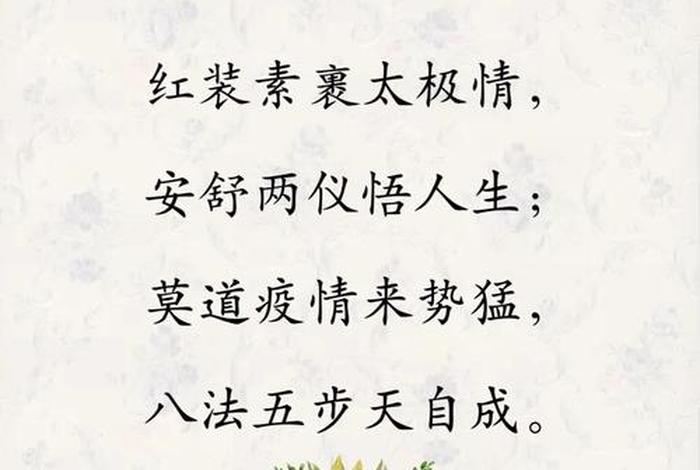 红装素裹太极情，
安舒两仪悟人生；
莫道疫情来势猛，
八法五步天自成。